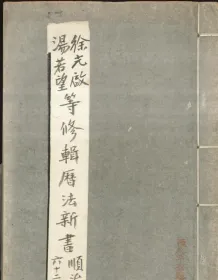 徐光啟
湯若望
等修輯曆法新書
順治
六十二